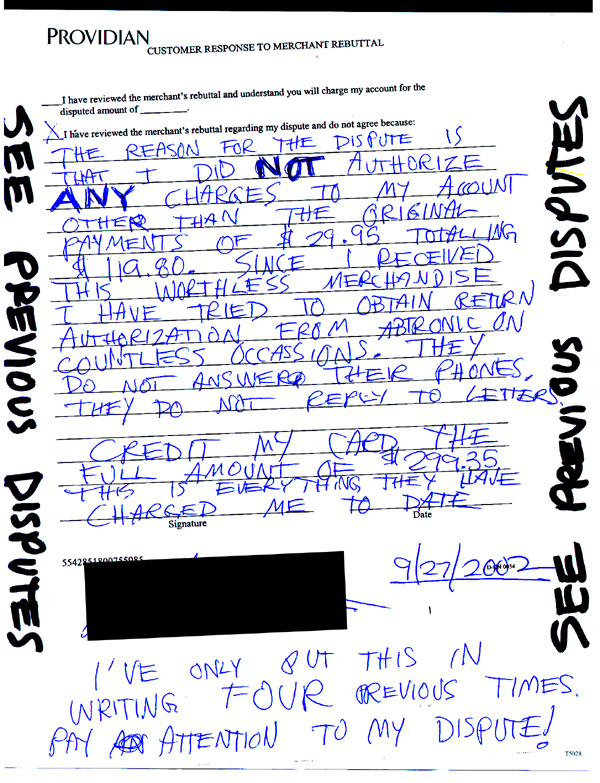 PROVIDIAN
CUSTOMER RESPONSE TO MERCHANT REBUTTAL
___I have reviewed the merchant's rebuttal and understand you will charge my account for the
disputed amount of ________.
X I have reviewed the merchant's rebuttal regarding my dispute and do not agree because:
THE REASON FOR THE DISPUTE IS
THAT I DID NOT AUTHORIZE
ANY CHARGES TO MY ACCOUNT
OTHER THAN THE ORIGINAL
PAYMENTS OF $29.95 TOTALLING
$119.80. SINCE I RECEIVED
THIS WORTHLESS MERCHANDISE
I HAVE TRIED TO OBTAIN RETURN
AUTHORIZATION FROM ABTRONIC ON
COUNTLESS OCCASSIONS. THEY
DO NOT ANSWER THEIR PHONES,
THEY DO NOT REPLY TO LETTERS.
CREDIT MY CARD THE
FULL AMOUNT OF $299.35
THIS IS EVERYTHING THEY HAVE
CHARGED ME TO DATE
Signature Date
9/27/2002
I'VE ONLY PUT THIS IN
WRITING FOUR PREVIOUS TIMES.
PAY ATTENTION TO MY DISPUTE!
T5028
SEE PREVIOUS DISPUTES
SEE PREVIOUS DISPUTES